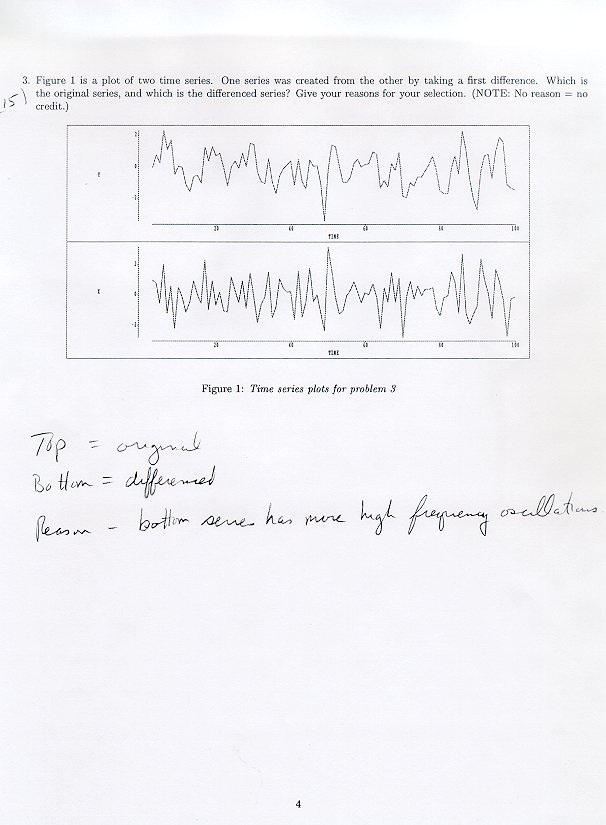 3. Figure 1 is a plot of two time series. One series was created from the other by taking a first difference. Which is
15)
the original series, and which is the differenced series? Give your reasons for your selection. (NOTE: No reason = no
credit.)
20 40 60 80 100
TIME
X
20 40 60 80 100
TIME
Figure 1: Time series plots for problem 3
Top = original
Bottom = differenced
Reason - bottom series has more high frequency oscillations
4